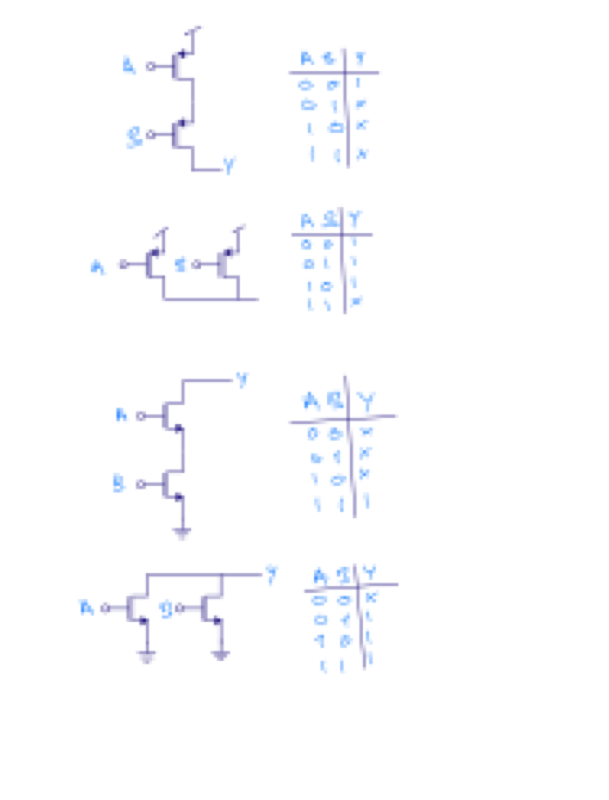 A
B
Y
A B Y
0 0 1
0 1 x
1 0 x
1 1 x
A
B
A B Y
0 0 1
0 1 1
1 0 1
1 1 x
Y
A
B
A B Y
0 0 x
0 1 x
1 0 x
1 1 1
Y
A
B
A B Y
0 0 x
0 1 1
1 0 1
1 1 1